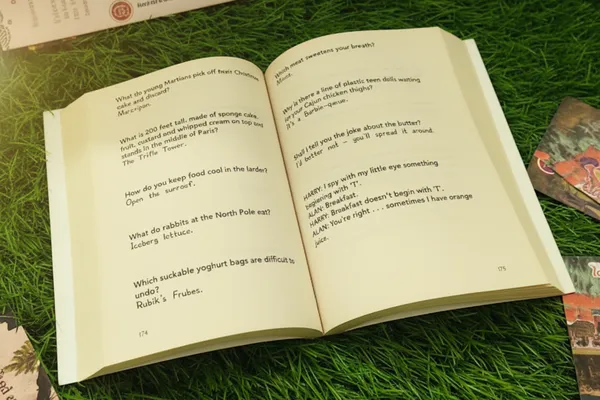 What do young Martians pick off their Christmas
cake and discard?
Marzipan.
What is 200 feet tall, made of sponge cake,
fruit, custard and whipped cream on top and
stands in the middle of Paris?
The Trifle Tower.
How do you keep food cool in the larder?
Open the sunroof.
What do rabbits at the North Pole eat?
Iceberg lettuce.
Which suckable yoghurt bags are difficult to
undo?
Rubik's Frubes.
174
Which meat sweetens your breath?
Mince.
Why is there a line of plastic teen dolls waiting
for your Cajun chicken thighs?
It's a Barbie-queue.
Shall I tell you the joke about the butter?
I'd better not – you'll spread it around.
HARRY: I spy with my little eye something
beginning with 'T'.
ALAN: Breakfast.
HARRY: Breakfast doesn't begin with 'T'.
ALAN: You're right . . . sometimes I have orange
juice.
175